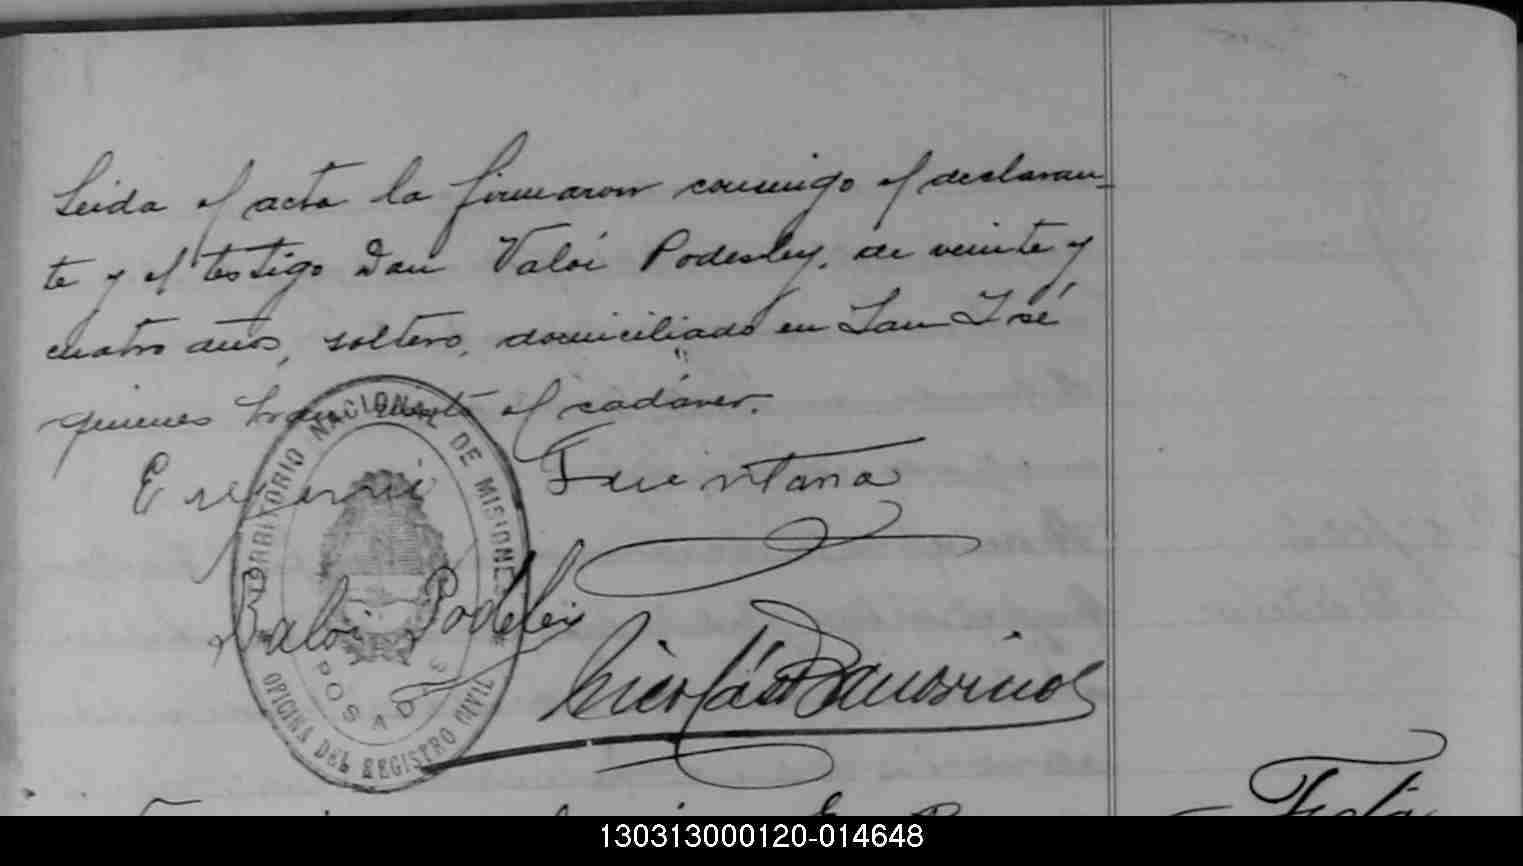 Leida el acta la firmaron conmigo el declaran-
te y el testigo Don Valoi Podesley, de veinte y
cuatro años, soltero, domiciliado en San José
quienes han visto el cadáver.
Fuentana
Valoi Podeley
Nicolás
TERRITORIO NACIONAL DE MISIONES
POSADAS
OFICINA DEL REGISTRO CIVIL
130313000120-014648